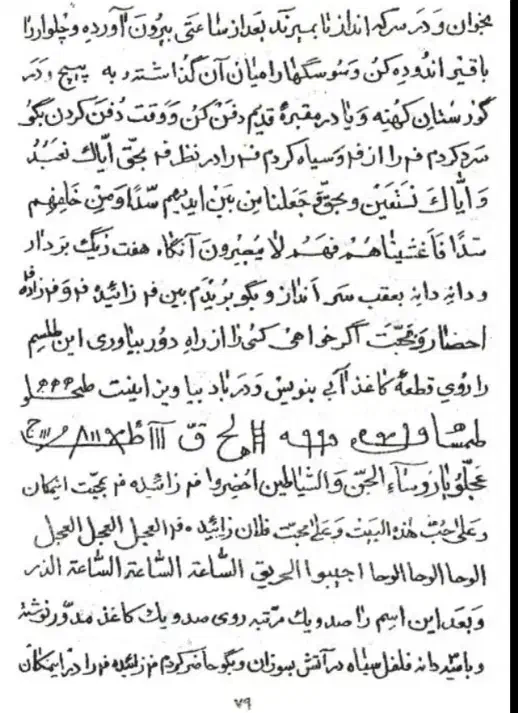 بخوان و در سرکه انداز تا بمیرند بعد از ساعتی بیرون آورده و چلوار را
با قیر اندوده کن و سوسکها را میان آن گذاشته و به پیچ و در
گورستان کهنه و یا در مقبرهٔ قدیم دفن کن و وقت دفن کردن بگو
سرد کردم فـ را از فـ و سیاه کردم فـ را در نظر فـ بحق ایاك نعبد
و ایاك نستعین و بحق و جعلنا من بین ایدیهم سدّا و من خلفهم
سدّا فاغشیناهم فهم لا یبصرون آنگاه هفت ریگ بردار
و دانه دانه بعقب سر انداز و بگو بریدم بین فـ زائیده فـ و فـ زاده فـ
احضار و محبّت اگر خواهی کسی را از راه دور بیاوری این طلسم
را روی قطعهٔ کاغذ آبی بنویس و در باد بیاویز اینست
عجّلو یا روساء الجن والشیاطین احضروا فـ زائیده فـ بحبّت ایمکان
و علی حُبّ هذه البیت و علی محبّت فلان زائیده فـ العجل العجل العجل
الوحا الوحا الوحا اجیبوا الحریق السّاعة السّاعة السّاعة
و بعد این اسم را صد و یك مرتبه روی صد و یك کاغذ مدوّر نوشته
و با سیّد دانه فلفل سیاه در آتش بسوزان و بگو حاضر کردم فـ زائیده فـ را در ایمکان
۷۹